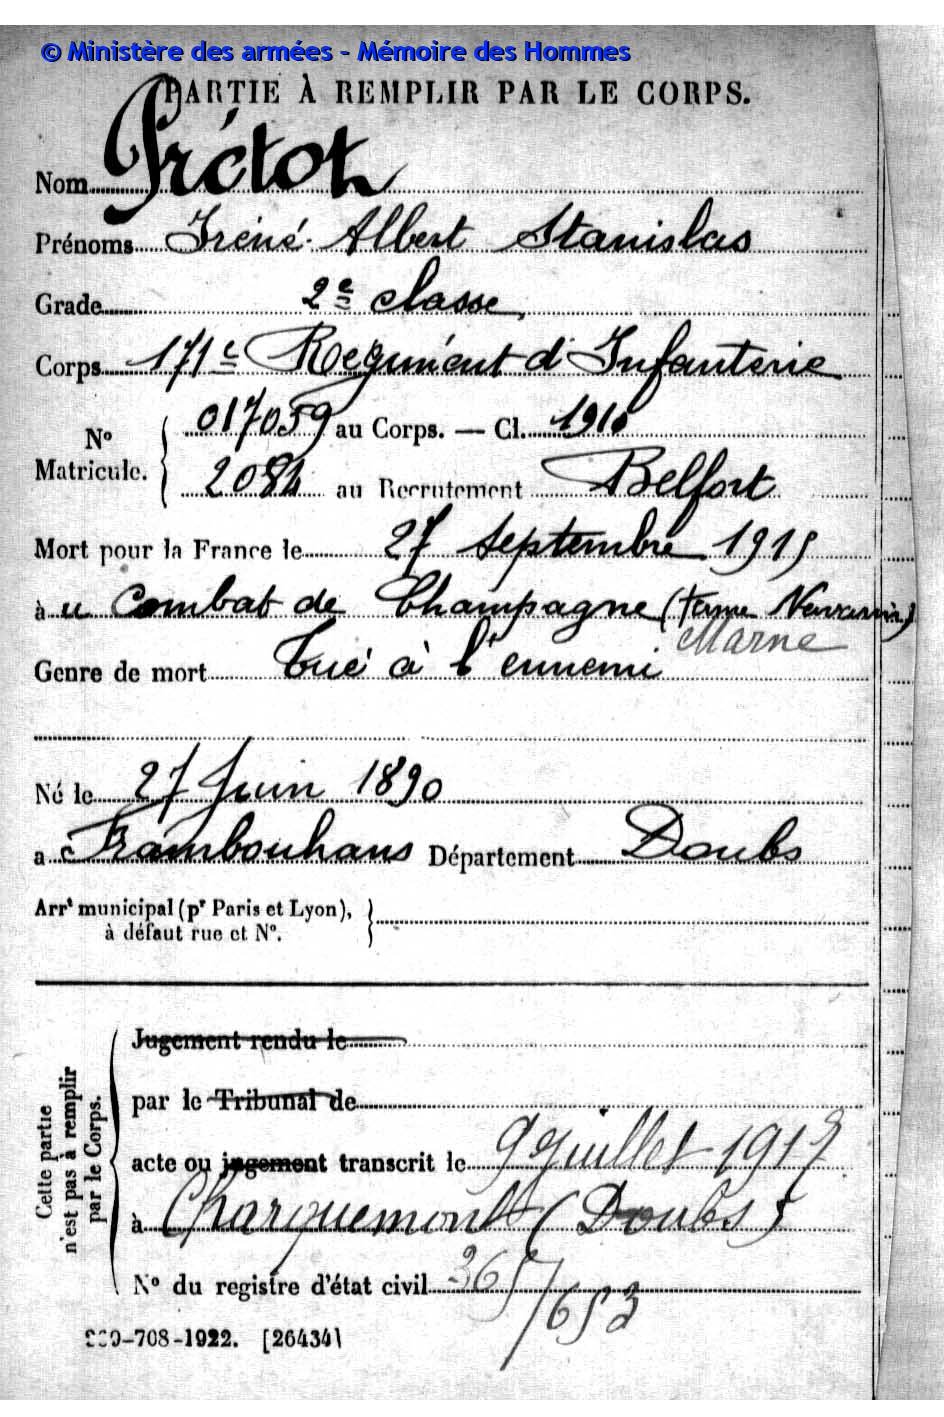 © Ministère des armées - Mémoire des Hommes
PARTIE À REMPLIR PAR LE CORPS.
Nom Prétot
Prénoms Iréné Albert Stanislas
Grade 2e classe,
Corps 171e Régiment d'Infanterie
No Matricule. { 017059 au Corps. — Cl. 1910
2084 au Recrutement Belfort
Mort pour la France le 27 septembre 1915
à u Combat de Champagne (ferme Navarin)
Marne
Genre de mort Tué à l'ennemi
Né le 27 Juin 1890
à Frambouhans Département Doubs
Arrt municipal (pr Paris et Lyon),
à défaut rue et No.
Cette partie
n'est pas à remplir
par le Corps.
Jugement rendu le
par le Tribunal de
acte ou jugement transcrit le 9 juillet 1917
à Charquemont (Doubs)
No du registre d'état civil 365/653
-708-1922. [26434]